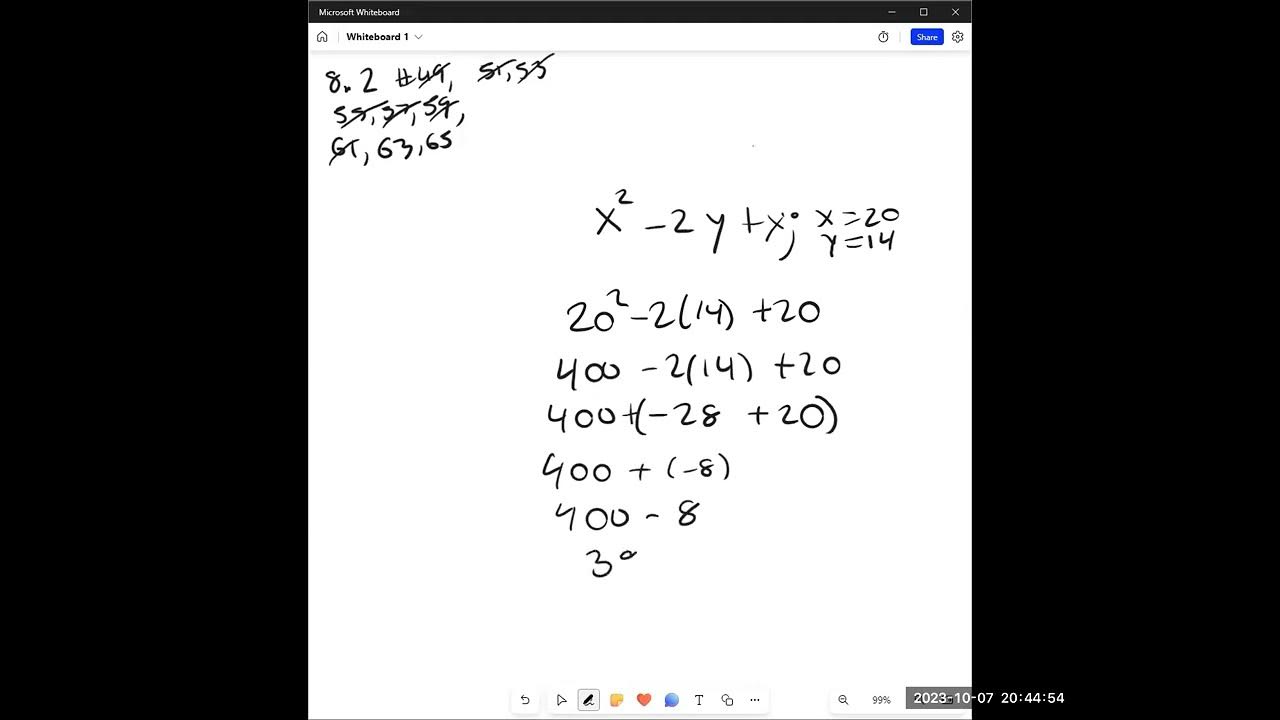 Microsoft Whiteboard
Whiteboard 1
Share
8.2 #49, 51, 53
55, 57, 59,
61, 63, 65
x² - 2y + x; x = 20
y = 14
20² - 2(14) + 20
400 - 2(14) + 20
400 + (-28 + 20)
400 + (-8)
400 - 8
3
T
99%
2023-10-07 20:44:54